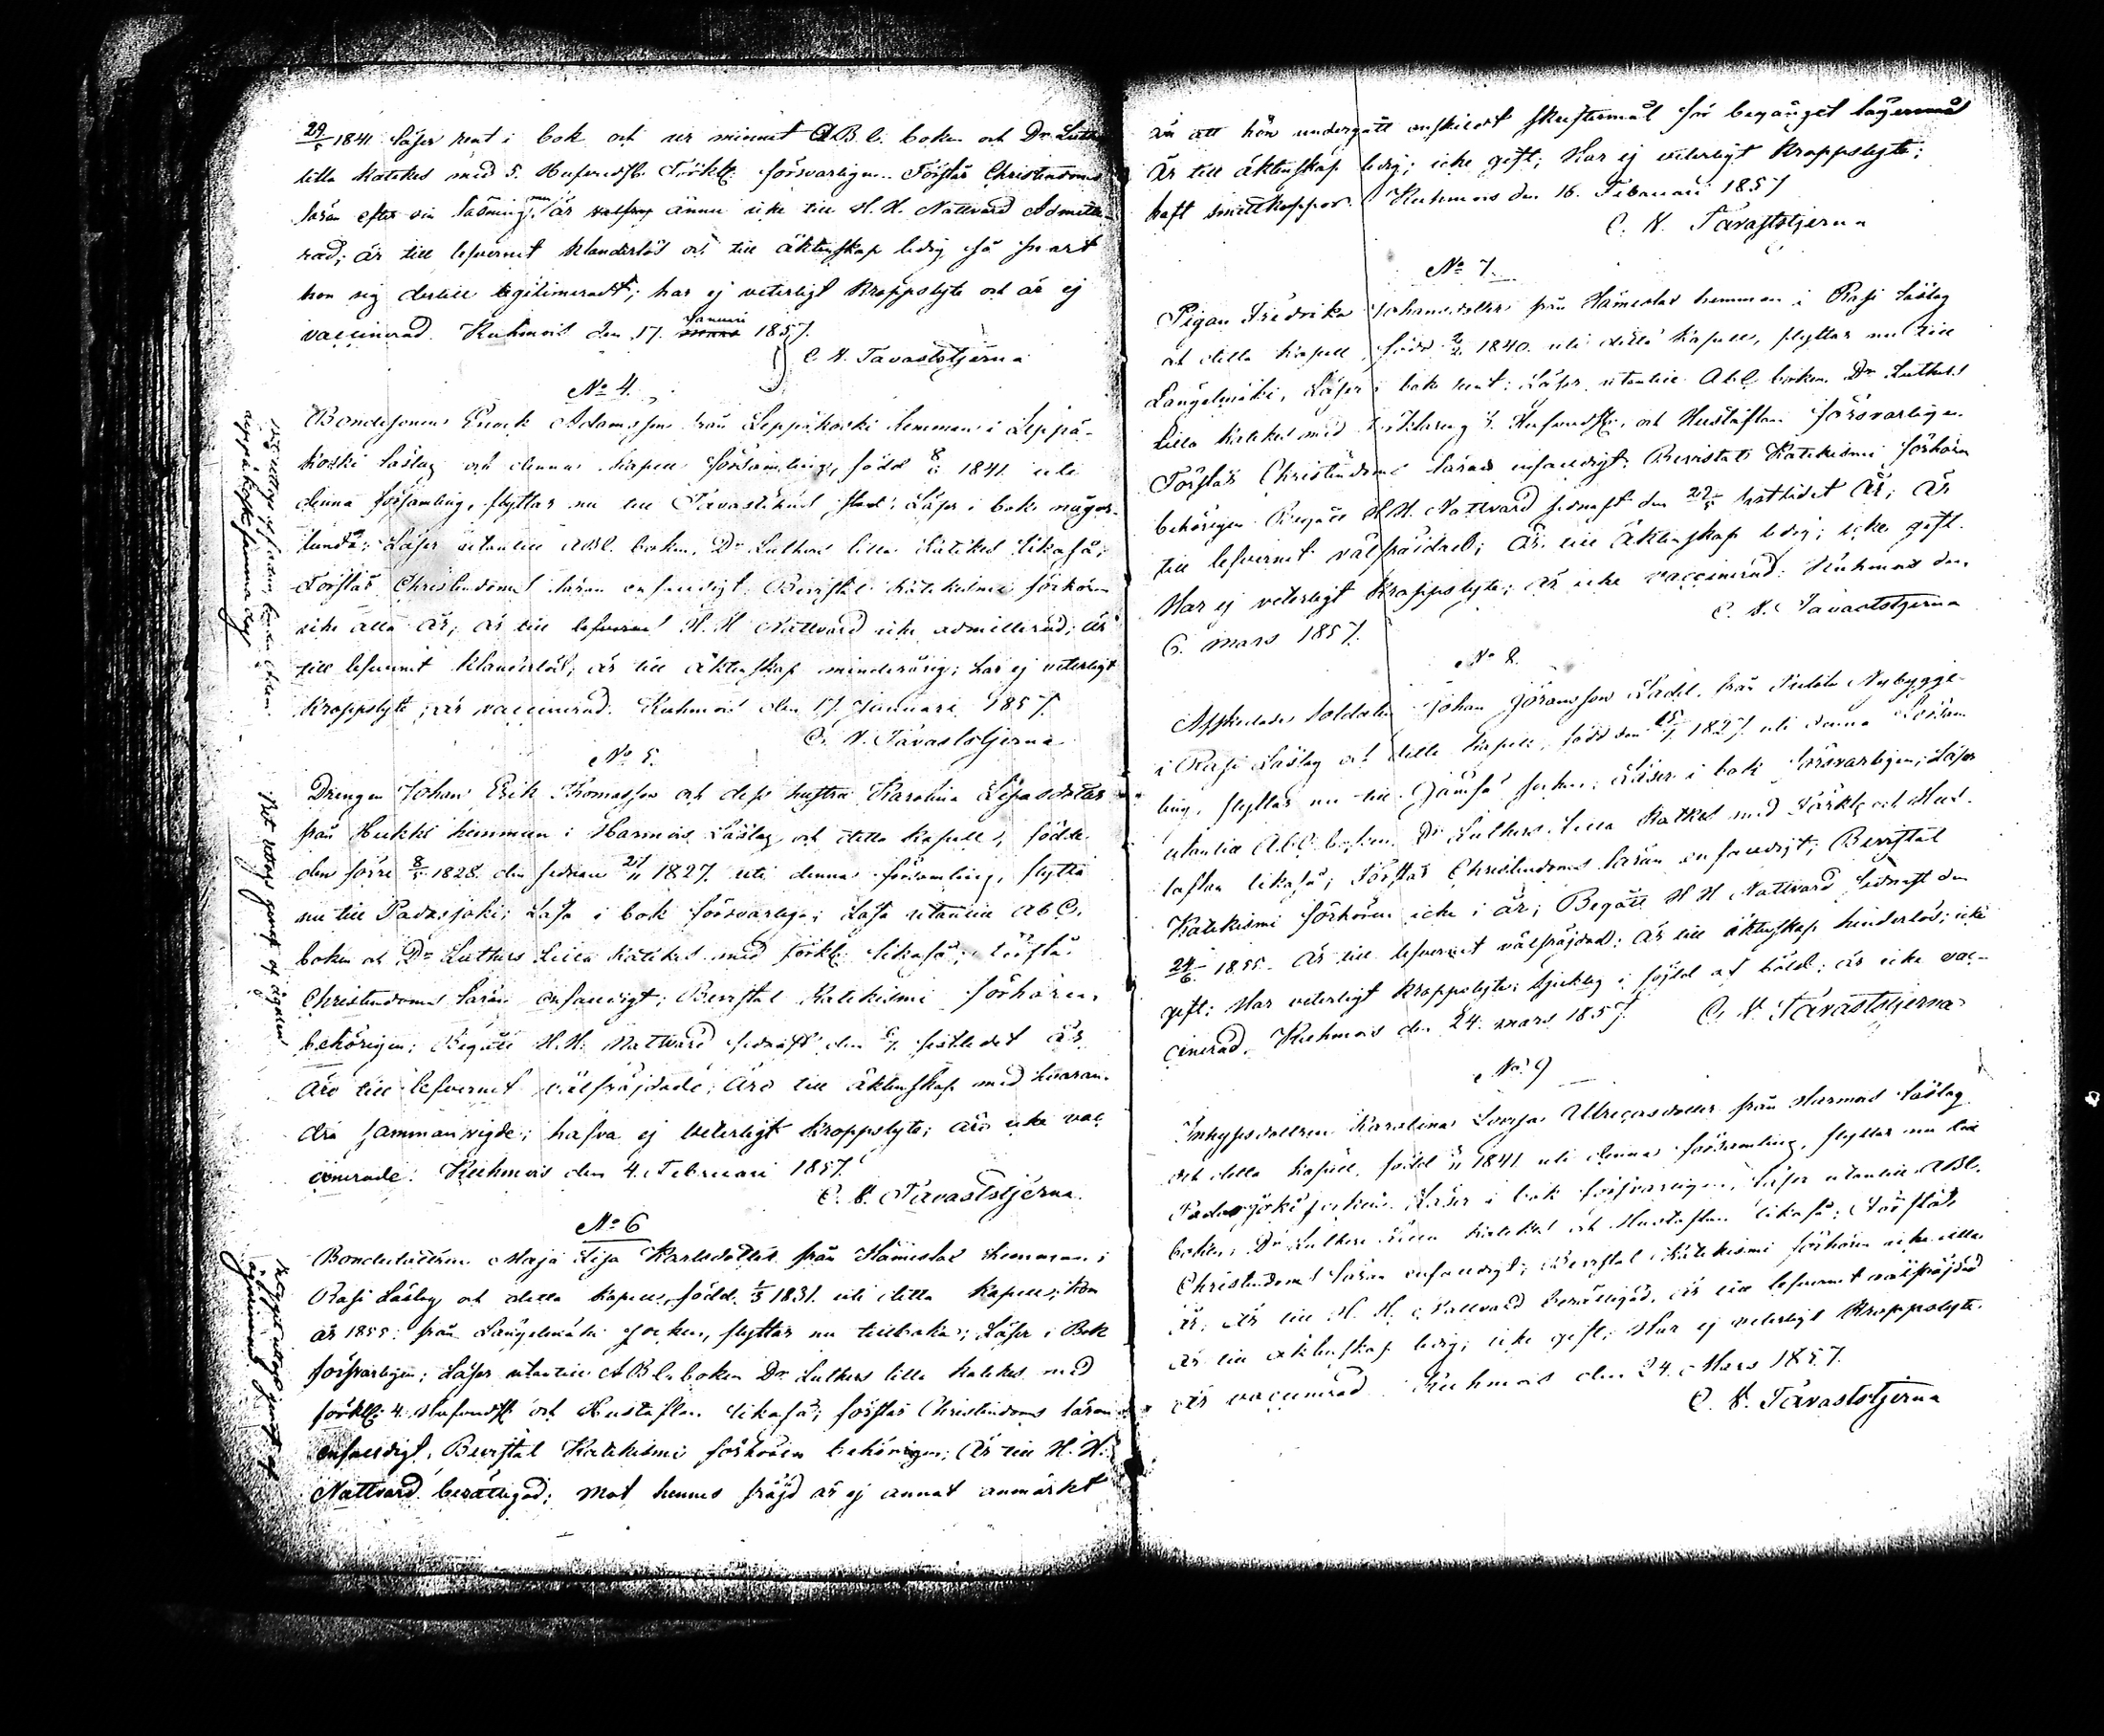 29/5 1841 Läser rent i bok och ur minnet A.B.C. boken och Dr Luth
lilla Katekes med 5. Hufvudst. Förkl. försvarligen. Förstår Christendoms
läran efter sin läsning, men är ännu icke till H. H. Nattvard Admitte-
rad; är till lefvernet klanderlös och till äktenskap ledig så snart
hon sig dertill legitimeradt; har ej veterligt kroppslyte och är ej
vaccinerad. Kuhmois den 17. Januari 1857.
C. N. Tavaststjerna
No 4.
Bondesonen Enock Adamsson från Leppäkoski hemman i Leppä-
koski Låslag och denna Kapell församling, född 8/ 1841 uti
denna församling, flyttar nu till Tavastehus stad; Läser i bok någor-
lunda; Läser utantill ABC. boken, Dr Luthers lilla Katekes likaså;
Förstår Christendoms läran enfaldigt. Bevistat Katekismi förhören
icke alla år; är till H. H. Nattvard icke admitterad; är
till lefvernet klanderlös, är till äktenskap minderårig; har ej veterligt
kroppslyte; är vaccinerad. Kuhmois den 17. Januari 1857.
C. N. Tavaststjerna
No 5.
Drengen Johan Erik Thomasson och dess hustru Karolina Lisasdotter
från Heikkilä hemman i Harmois Låslag och detta Kapell, födde
den förre 8/5 1828. den sednare 21/11 1827. uti denna församling, flytta
nu till Padasjoki; Läsa i bok försvarligen; Läsa utantill ABC.
boken och Dr Luthers Lilla Katekes med förkl. likaså; förstå
Christendoms läran enfaldigt; Bevistat Katekismi förhören
behörigen; Begått H.H. Nattvard sednast den 6/7 sistledet år
äro till lefvernet välfräjdade; Äro till äktenskap med hvaran-
dra sammanvigde; hafva ej veterligt kroppslyte; äro icke vac-
cinerade. Kuhmois den 4. Februari 1857.
C. N. Tavaststjerna.
No 6
Bondedottren Maja Lisa Karlsdotter från Hämeslax hemman i
Rasi Låslag och detta Kapell, född. 1/3 1831. uti detta Kapell; Kom
år 1855. från Längelmäki socken, flyttar nu tillbaka; Läser i Bok
försvarligen; Läser utantill A B C. boken Dr Luthers lilla Katekes med
förkl. 4. Hufvudst. och Hustaflan likaså; förstår Christendoms läran
enfaldigt, Bevistat Katekismi förhören behörigen; Är till H. H.
Nattvard berättigad; mot hennes fräjd är ej annat anmärkt
än att hon undergått enskildt skriftermål för begånget lägersmål
Är till äktenskap ledig; icke gift; Har ej veterligt Kroppslyte;
haft Smittkoppor. Kuhmois den 16. Februari 1857
C. N. Tavaststjerna
No 7.
Pigan Fredrika Johansdotter från Hämeslax hemman i Rasi Låslag
och detta Kapell, född 2/2 1840. uti detta Kapell, flyttar nu till
Längelmäki, Läser i bok rent; Läser utantill ABC boken Dr Luthers
Lilla Katekes med förklaring 5. Hufvudst., och Hustaflan försvarligen
Förstår Christendoms läran enfaldigt. Bevistat Katekismi förhören
behörigen Begått H.H. Nattvard sednast den 29/5 sistlidet År; Är
till lefvernet välfräjdad; Är till Äktenskap ledig; icke gift.
Har ej veterligt Kroppslyte; är icke vaccinerad. Kuhmois den
6. Mars 1857. C. N. Tavaststjerna
No 8.
Afskedade Soldaten Johan Göransson Ladd, från Nybygge
i Rasi Låslag och detta Kapell, född den 15/1 1827 uti denna försam
ling, flyttar nu till Jämsä socken; Läser i bok försvarligen; Läser
utantill ABC boken Dr Luthers Lilla Katkes med Förkl. och Hus-
taflan likaså; Förstår Christendoms läran enfaldigt, Bevistat
Katekismi förhören icke i år; Begått H H Nattvard Sednast den
24/6 1855. Är till lefvernet välfräjdad; Är till äktenskap hinderlös; icke
gift; Har veterligt kroppslyte; Sjuklig i följd af böld; är icke vac-
cinerad. Kuhmois den 24. mars 1857. C. N. Tavaststjerna
No 9
Inhysesdottren Karolina Lovisa Ulricasdotter från Harmois Låslag
och detta Kapell, född 5/11 1841 uti denna församling, flyttar nu till
Padasjoki socken. Läser i bok försvarligen; Läser utantill ABC.
boken, Dr Luthers Lilla Katekes och Hustaflan likaså; Förstår
Christendoms läran enfaldigt; Bevistat Katekismi förhören icke alla
År; Är till H. H. Nattvard berättigad, är till lefvernet välfräjdad
är till äktenskap ledig; icke gift; Har ej veterligt Kroppslyte.
Är vaccinerad. Kuhmois den 24. Mars 1857.
C. N. Tavaststjerna
Bet. uttogs genast af ägaren